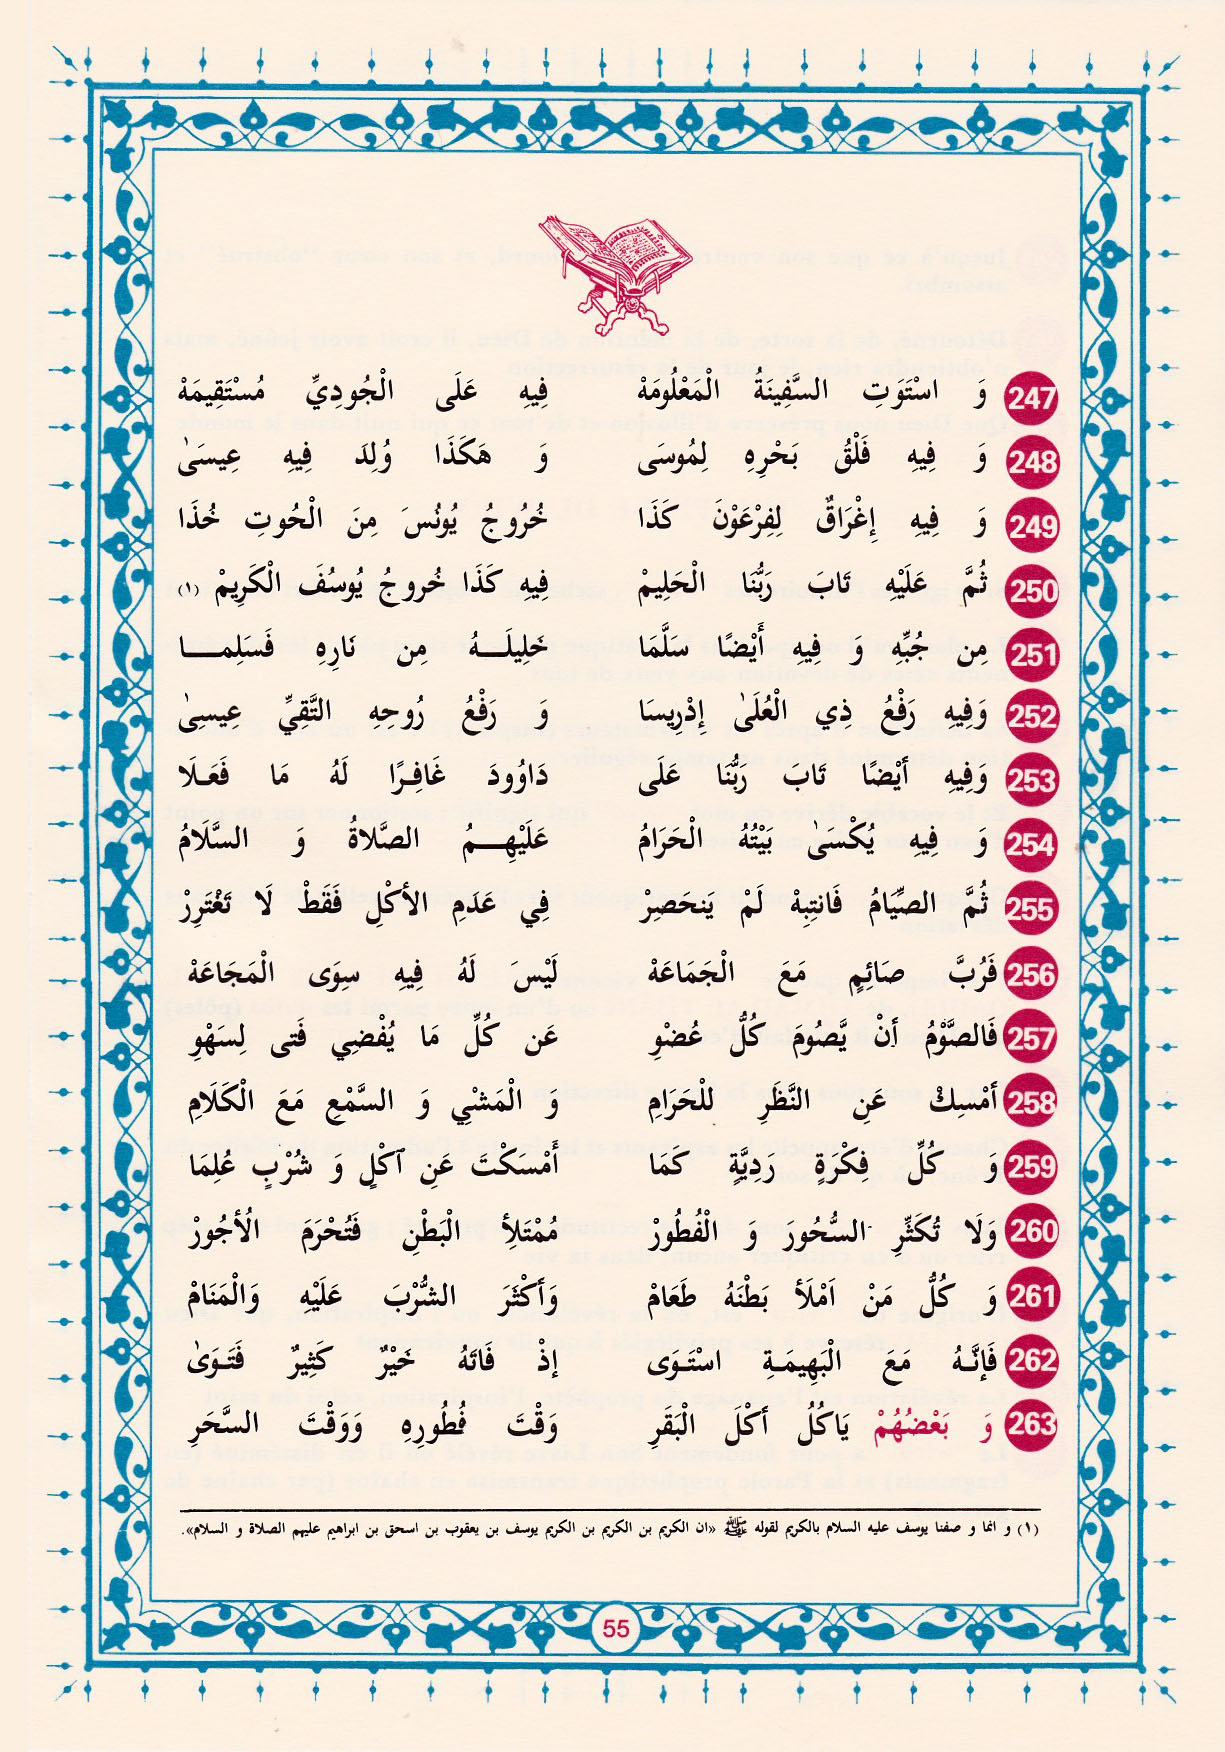 247 وَ اسْتَوَتِ السَّفِينَةُ الْمَعْلُومَهْ فِيهِ عَلَى الْجُودِيِّ مُسْتَقِيمَهْ
248 وَ فِيهِ فَلْقُ بَحْرِهِ لِمُوسَى وَ هَكَذَا وُلِدَ فِيهِ عِيسَىٰ
249 وَ فِيهِ إِغْرَاقٌ لِفِرْعَوْنَ كَذَا خُرُوجُ يُونُسَ مِنَ الْحُوتِ خُذَا
250 ثُمَّ عَلَيْهِ تَابَ رَبُّنَا الْحَلِيمْ فِيهِ كَذَا خُروجُ يُوسُفَ الْكَرِيمْ (١)
251 مِن جُبِّهِ وَ فِيهِ أَيْضًا سَلَّمَا خَلِيلَـهُ مِن نَارِهِ فَسَلِمـا
252 وَفِيهِ رَفْعُ ذِي الْعُلَىٰ إِدْرِيسَا وَ رَفْعُ رُوحِهِ التَّقِيِّ عِيسىٰ
253 وَفِيهِ أَيْضًا تَابَ رَبُّنَا عَلَى دَاوُودَ غَافِرًا لَهُ مَا فَعَلَا
254 وَ فِيهِ يُكْسَىٰ بَيْتُهُ الْحَرَامُ عَلَيْهِـمُ الصَّلاةُ وَ السَّلَامُ
255 ثُمَّ الصِّيَامُ فَانتِبِهْ لَمْ يَنحَصِرْ فِي عَدَمِ الأكْلِ فَقَطْ لَا تَغْتَرِرْ
256 فَرُبَّ صَائِمٍ مَعَ الْجَمَاعَهْ لَيْسَ لَهُ فِيهِ سِوَى الْمَجَاعَهْ
257 فَالصَّوْمُ أنْ يَّصُومَ كُلُّ عُضْوِ عَن كُلِّ مَا يُفْضِي فَتى لِسَهْوِ
258 أمْسِكْ عَنِ النَّظَرِ للْحَرَامِ وَ الْمَشْيِ وَ السَّمْعِ مَعَ الْكَلَامِ
259 وَ كُلِّ فِكْرةٍ رَدِيَّةٍ كَمَا أَمْسكْتَ عَنِ اَكْلٍ وَ شُرْبٍ عُلِمَا
260 وَلَا تُكَثِّرِ السُّحُورَ وَ الْفُطُورْ مُمْتَلِأَ الْبَطْنِ فَتُحْرَمَ الُأجُورْ
261 وَ كُلُّ مَنْ اَمْلَأَ بَطْنَهُ طَعَامْ وَأَكْثَرَ الشُّرْبَ عَلَيْهِ وَالْمَنَامْ
262 فَإنَّـهُ مَعَ الْبَهِيمَةِ اسْتَوَى إذْ فَاتَهُ خَيْرٌ كَثِيرٌ فَتَوَىٰ
263 وَ بَعْضُهُمْ يَاكُلُ أكْلَ الْبَقَرِ وَقْتَ فُطُورِهِ وَوَقْتَ السَّحَرِ
(١) و انما و صفنا يوسف عليه السلام بالكريم لقوله ﷺ «ان الكريم بن الكريم بن الكريم يوسف بن يعقوب بن اسحق بن ابراهيم عليهم الصلاة و السلام».
55